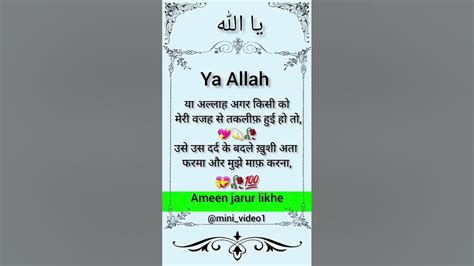 يا الله
Ya Allah
या अल्लाह अगर किसी को
मेरी वजह से तकलीफ़ हुई हो तो,
💝💫🥀
उसे उस दर्द के बदले ख़ुशी अता
फरमा और मुझे माफ़ करना,
💝🥀💯
Ameen jarur likhe
@mini_video1